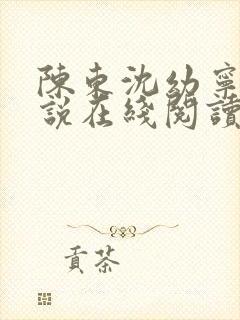 陳東沈幼寧
說在綫閱讀
貢茶